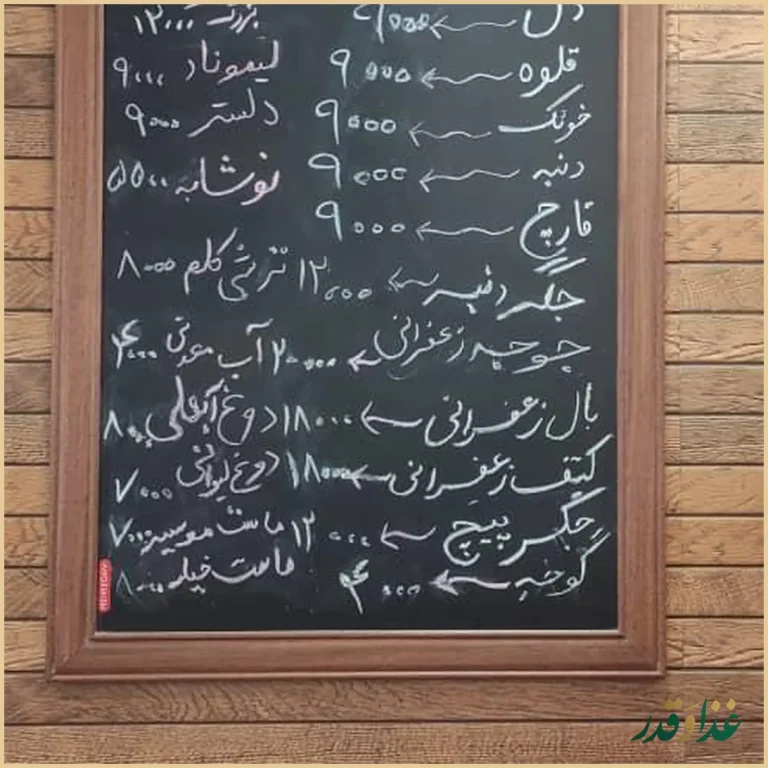 دل ← ۹۰۰۰
قلوه ← ۹۰۰۰
خونک ← ۹۰۰۰
دنبه ← ۹۰۰۰
قارچ ← ۹۰۰۰
جگر دنبه ← ۱۲۰۰۰
جوجه زعفرانی ← ۲۰۰۰۰
بال زعفرانی ← ۱۸۰۰۰
کتف زعفرانی ← ۱۸۰۰۰
جگر پیچ ← ۱۲۰۰۰
گوجه ← ۴۰۰۰
بزرگ ۱۲۰۰۰
لیموناد ۹۰۰۰
دلستر ۹۰۰۰
نوشابه ۵۵۰۰
ترشی کلم ۸۰۰۰
آب معدنی ۴۰۰۰
دوغ آبعلی ۸۰۰۰
دوغ لیوانی ۷۰۰۰
ماست موسیر ۷۰۰۰
ماست خیار ۸۰۰۰
غذا و قدر